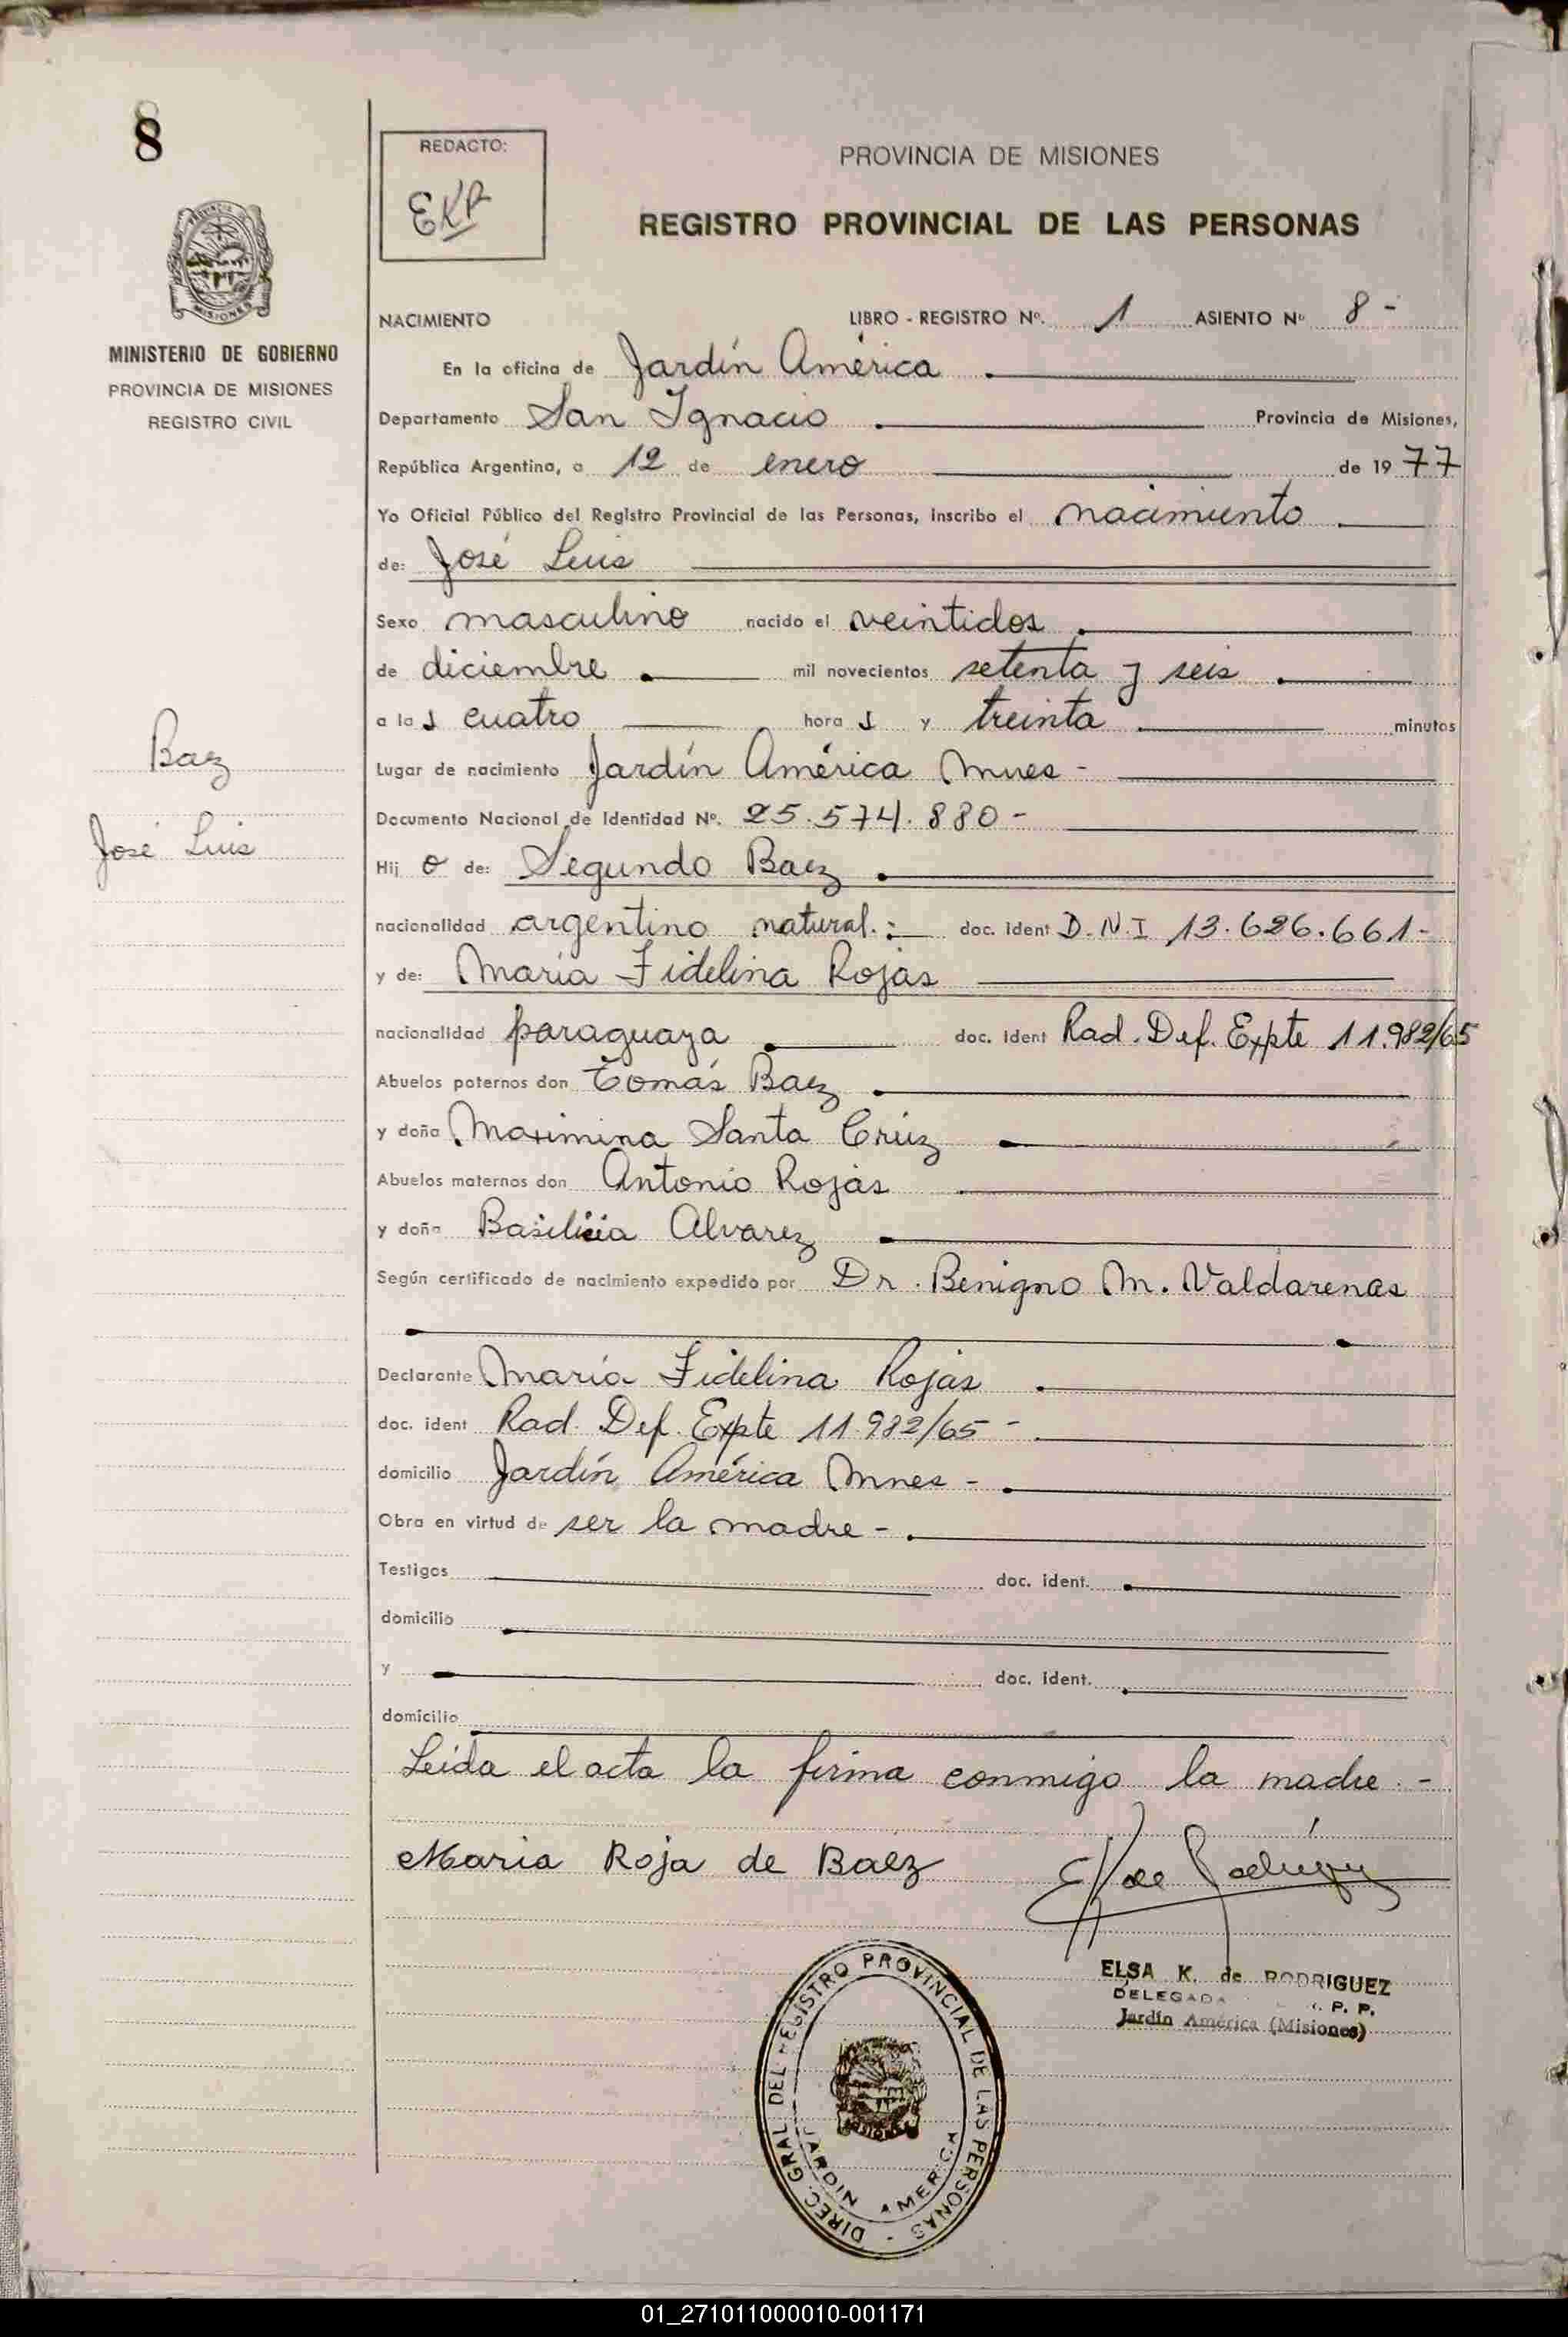 8
REDACTO:
EKR
PROVINCIA DE MISIONES
REGISTRO PROVINCIAL DE LAS PERSONAS
MISIONES
MINISTERIO DE GOBIERNO
PROVINCIA DE MISIONES
REGISTRO CIVIL
Baez
José Luis
NACIMIENTO LIBRO - REGISTRO Nº. 1 ASIENTO Nº 8 -
En la oficina de Jardín América
Departamento San Ignacio Provincia de Misiones,
República Argentina, a 12 de enero de 1977
Yo Oficial Público del Registro Provincial de las Personas, inscribo el nacimiento
de: José Luis
Sexo masculino nacido el veintidos
de diciembre mil novecientos setenta y seis
a la s cuatro hora s y treinta minutos
Lugar de nacimiento Jardín América Mnes -
Documento Nacional de Identidad Nº. 25.574.880 -
Hij o de: Segundo Baez
nacionalidad argentino natural.- doc. ident D.N.I 13.626.661-
y de: María Fidelina Rojas
nacionalidad paraguaya doc. ident Rad. Def. Expte 11.982/65
Abuelos paternos don Tomás Baez
y doña Maximina Santa Cruz
Abuelos maternos don Antonio Rojas
y doña Basilicia Alvarez
Según certificado de nacimiento expedido por Dr. Benigno M. Valdarenas
Declarante María Fidelina Rojas
doc. ident Rad. Def. Expte 11.982/65 -
domicilio Jardín América Mnes -
Obra en virtud de ser la madre -
Testigos doc. ident.
domicilio
y doc. ident.
domicilio
Leida el acta la firma conmigo la madre.-
Maria Roja de Baez
EK de Rodríguez
ELSA K. de RODRIGUEZ
DELEGADA P. P.
Jardín América (Misiones)
DIREC. GRAL DEL REGISTRO PROVINCIAL DE LAS PERSONAS -
JARDIN AMERICA
01_271011000010-001171